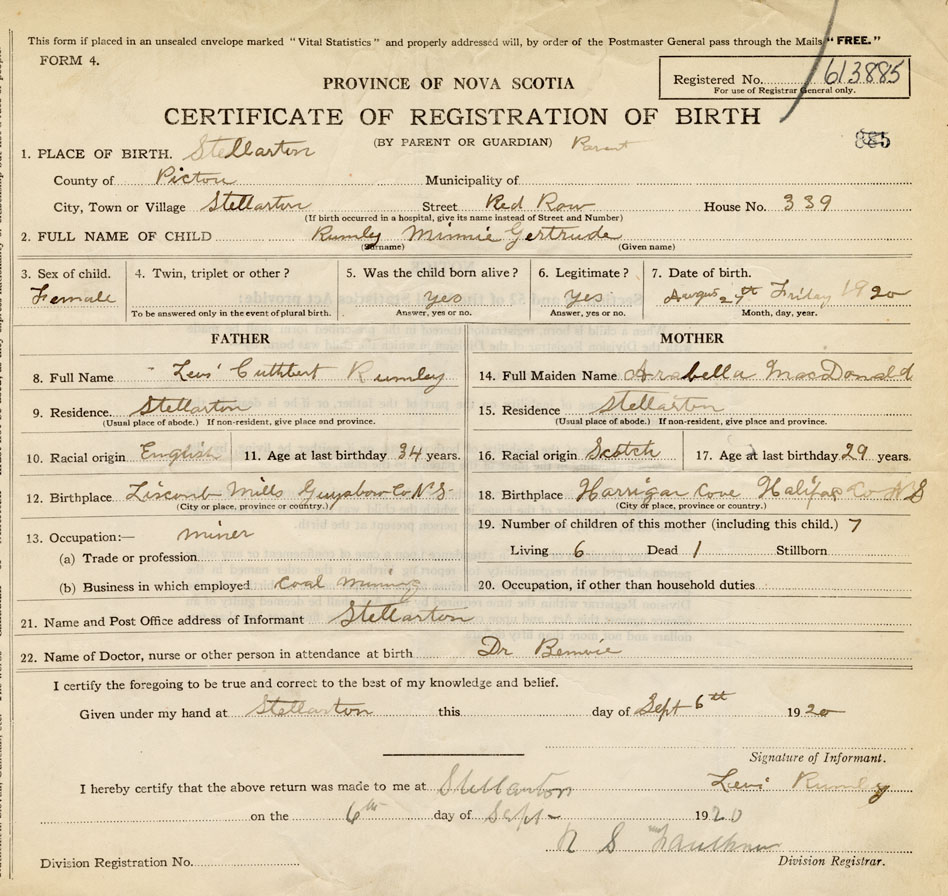 This form if placed in an unsealed envelope marked "Vital Statistics" and properly addressed will, by order of the Postmaster General pass through the Mails "FREE."
FORM 4.
Registered No. 613885
For use of Registrar General only.
PROVINCE OF NOVA SCOTIA
CERTIFICATE OF REGISTRATION OF BIRTH
(BY PARENT OR GUARDIAN) Parent
885
1. PLACE OF BIRTH. Stellarton
County of Pictou Municipality of
City, Town or Village Stellarton Street Red Row House No. 339
(If birth occurred in a hospital, give its name instead of Street and Number)
2. FULL NAME OF CHILD Rumley Minnie Gertrude
(Surname) (Given name)
3. Sex of child. 4. Twin, triplet or other? 5. Was the child born alive? 6. Legitimate? 7. Date of birth.
Female yes Yes 27th Friday 1920
To be answered only in the event of plural birth. Answer, yes or no. Answer, yes or no. Month, day, year.
FATHER MOTHER
8. Full Name Levi Cuthbert Rumley 14. Full Maiden Name Arabella MacDonald
9. Residence. Stellarton 15. Residence Stellarton
(Usual place of abode.) If non-resident, give place and province. (Usual place of abode.) If non-resident, give place and province.
10. Racial origin English 11. Age at last birthday 34 years. 16. Racial origin Scotch 17. Age at last birthday 29 years.
12. Birthplace Liscomb Mills Guysboro Co N.S. 18. Birthplace Harrigan Cove Halifax Co N S
(City or place, province or country.) (City or place, province or country.)
13. Occupation:— miner 19. Number of children of this mother (including this child.) 7
(a) Trade or profession Living 6 Dead 1 Stillborn
(b) Business in which employed Coal mining 20. Occupation, if other than household duties
21. Name and Post Office address of Informant Stellarton
22. Name of Doctor, nurse or other person in attendance at birth Dr
I certify the foregoing to be true and correct to the best of my knowledge and belief.
Given under my hand at Stellarton this day of Sept 6th 1920
Signature of Informant.
I hereby certify that the above return was made to me at Stellarton Levi Rumley
on the 6th day of Sept- 1920
N S
Division Registration No. Division Registrar.